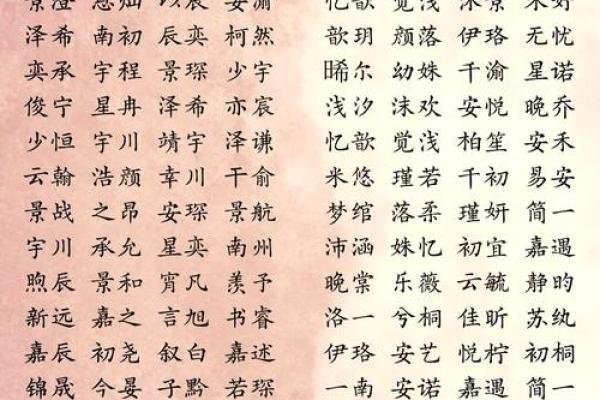 景澄 思灿 以宸 安澜 忆歆 觉浅 沐景 禾好
泽希 南初 辰奕 柯然 歆玥 颜落 伊珞 无忧
奕承 宇程 景琛 少宇 晞尔 幼姝 千渝 星诺
俊宁 星冉 泽希 亦宸 浅汐 沫欢 安悦 晚乔
少恒 宇川 靖宇 泽谦 忆歆 觉浅 柏笙 安禾
云翰 浩颜 幸川 干俞 米悠 瑾若 千初 易安
景战 之昂 安琛 景航 梦绾 落柔 瑾妍 简一
宇川 承允 星奕 南州 沛涵 姝忆 初宜 嘉遇
煦辰 景和 宵凡 羡予 晚棠 乐薇 云毓 静昀
新远 嘉之 言旭 书睿 洛一 兮桐 佳昕 苏纨
嘉辰 初尧 叙白 嘉述 伊珞 安艺 悦柠 初桐
锦晟 今晏 子黔 若琛 一南 安诺 嘉遇 简一